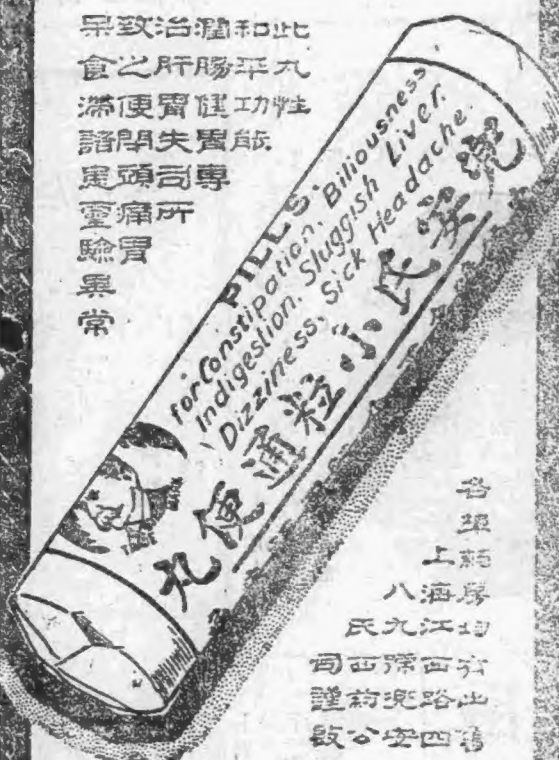 此丸性
和平功能
潤腸健胃專
治肝胃失司所
致之便閉頭痛胃
呆食滯諸患靈驗異常
PILLS.
for Constipation, Biliousness
Indigestion, Sluggish Liver,
Dizziness, Sick Headache.
兜安氏小粒通便丸
各埠葯房均有出售
上海江西路四
八九號兜安
氏西葯公
司謹啟